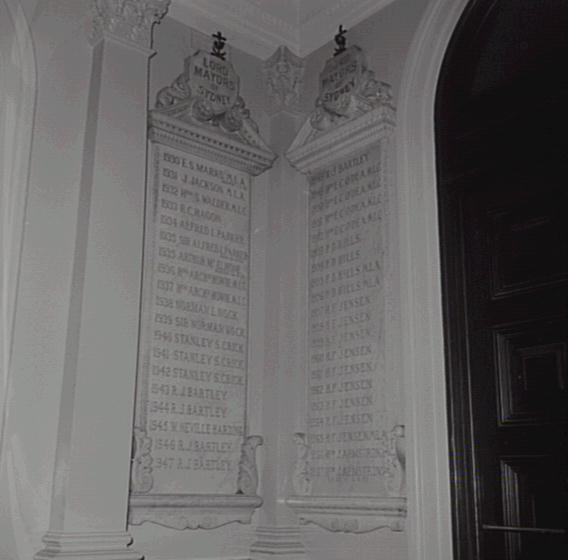 LORD
MAYORS
OF
SYDNEY
1930 E.S. MARKS, M.L.A.
1931 J. JACKSON, M.L.A.
1932 HON S. WALDER, M.L.C.
1933 R.C. HAGON
1934 ALFRED L. PARKER
1935 SIR ALFRED L. PARKER
1935 ARTHUR MCELHONE
1936 HON ARCHD HOWIE, M.L.C.
1937 HON ARCHD HOWIE, M.L.C.
1938 NORMAN L. NOCK
1939 SIR NORMAN NOCK
1940 STANLEY S. CRICK
1941 STANLEY S. CRICK
1942 STANLEY S. CRICK
1943 R.J. BARTLEY
1944 R.J. BARTLEY
1945 W. NEVILLE HARDING
1946 R.J. BARTLEY
1947 R.J. BARTLEY
LORD
MAYORS
OF
SYDNEY
R.J. BARTLEY
E.C. O'DEA, M.L.C.
E.C. O'DEA, M.L.C.
E.C. O'DEA, M.L.C.
E.C. O'DEA, M.L.C.
P.D. HILLS
P.D. HILLS
P.D. HILLS, M.L.A.
P.D. HILLS, M.L.A.
H.F. JENSEN
H.F. JENSEN
H.F. JENSEN
H.F. JENSEN
H.F. JENSEN
H.F. JENSEN
H.F. JENSEN
H.F. JENSEN, M.L.A.
ARMSTRONG
ARMSTRONG